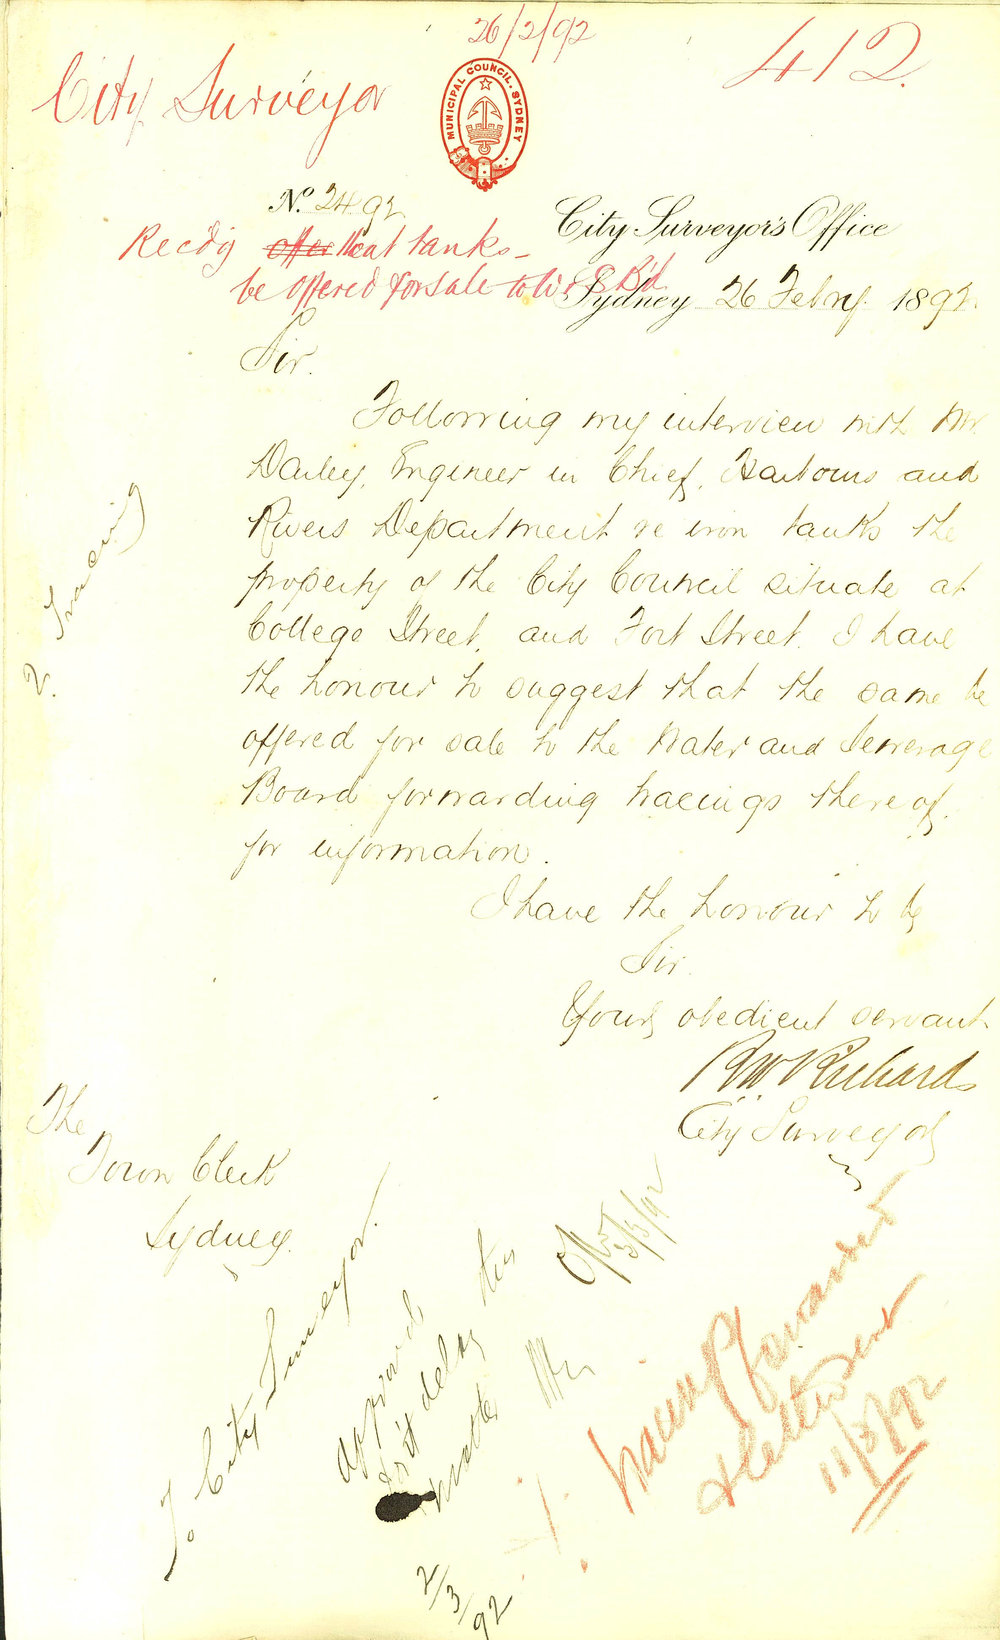 26/2/92
412.
City Surveyor
MUNICIPAL COUNCIL. SYDNEY
No. 24 92
City Surveyor's Office
Reccdg offer that tanks
be offered for sale to W & S B'd
Sydney 26 Febry. 1892.
Sir.
Following my interview with Mr.
Darley, Engineer in Chief, Harbours and
Rivers Department re iron tanks the
property of the City Council situate at
College Street, and Fort Street. I have
the honour to suggest that the same be
offered for sale to the Water and Sewerage
Board forwarding tracings thereof.
for information.
I have the honour to be
Sir.
Yours obedient servant
R W Richards
City Surveyor
2. Tracing
The
Town Clerk
Sydney.
To City Surveyor.
approved
don't delay this
matter
2/3/92
3/3/92
tracing forwarded
& letter sent
11/3/92